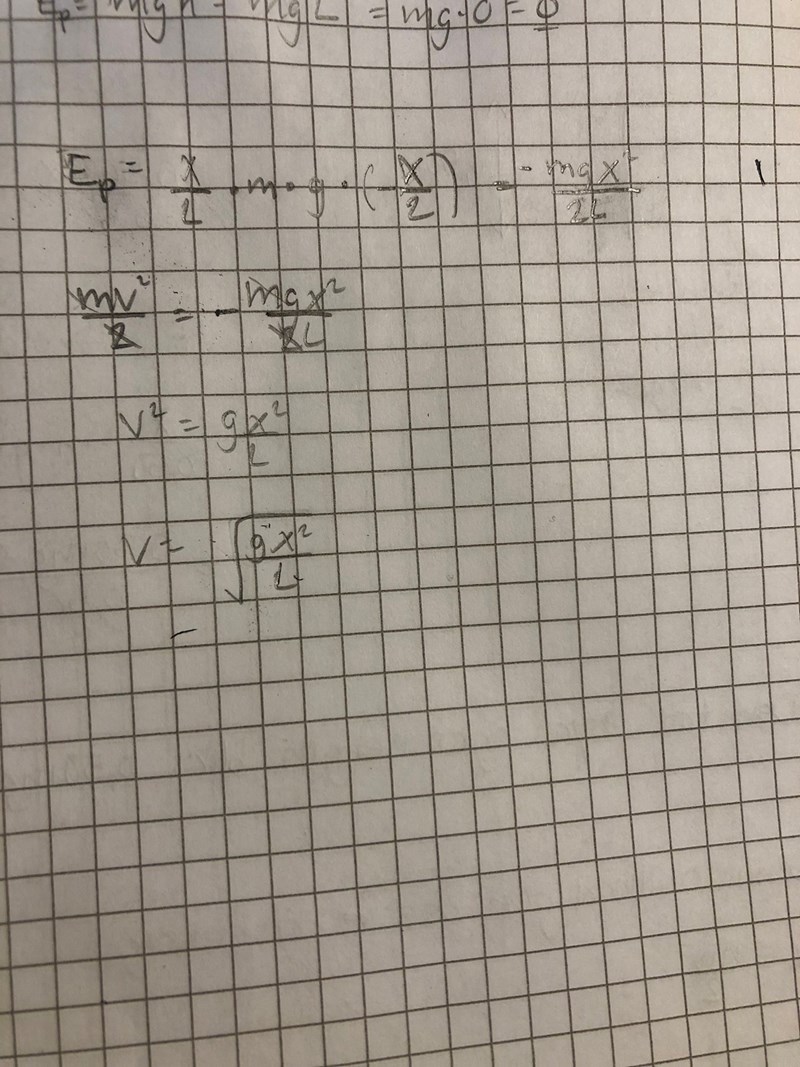 Ep = mgh = mgL = mg·0 = 0
Ep = x/L · m · g · (-x/2) = -mgx²/2L
mv²/2 = - mgx²/2L
v² = gx²/L
v = √(gx²/L)